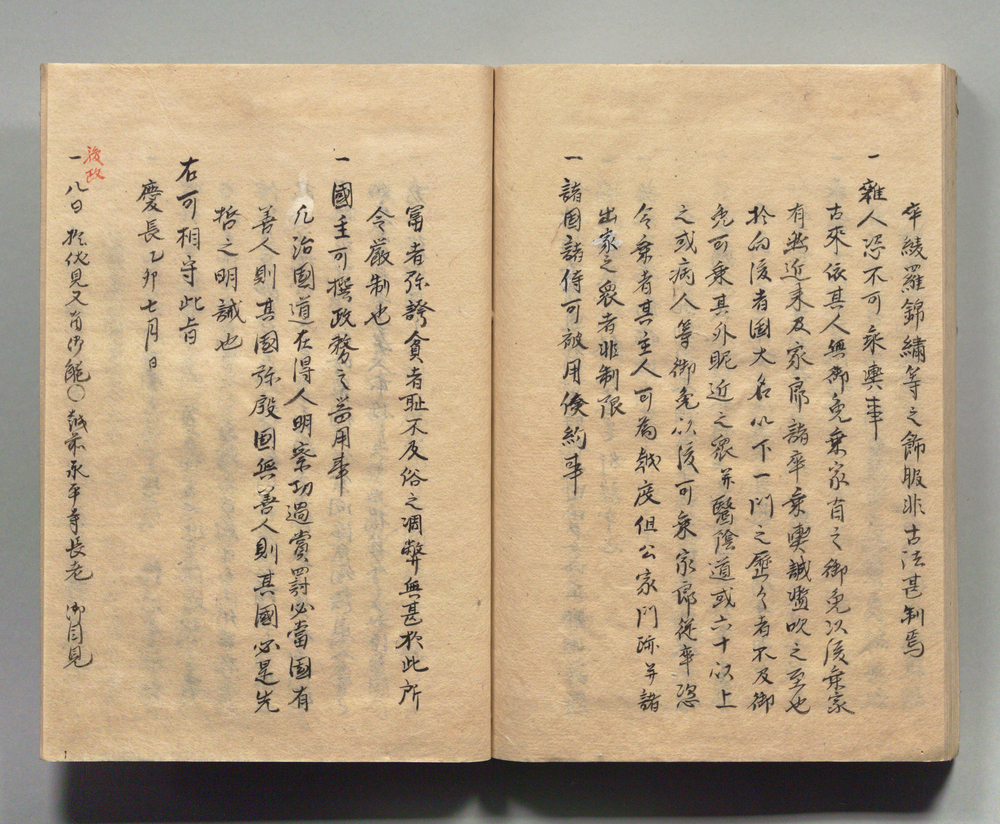 卒綾羅錦繡等之飾服非古法甚制焉
一雜人恣不可乘輿事
古來依其人無御免乘家有之御免以後乘家
有然近來及家郎諸卒乘輿誠濫吹之至也
於向後者國大名以下一門之歷々者不及御
免可乘其外昵近之衆并醫陰道或六十以上
之或病人等御免以後可乘家郎從卒恣
令乘者其主人可為越度但公家門跡并諸
出家之衆者非制限
一諸国諸侍可被用儉約事
冨者弥誇貪者耻不及俗之凋弊無甚於此所
令嚴制也
一國主可撰政務之器用事
凡治國道在得人明察功過賞罰必當国有
善人則其國弥殷国無善人則其國必是先
哲之明誡也
右可相守此旨
慶長乙卯七月日
後政
一八日於伏見又有御能〇越前永平寺長老 御目見